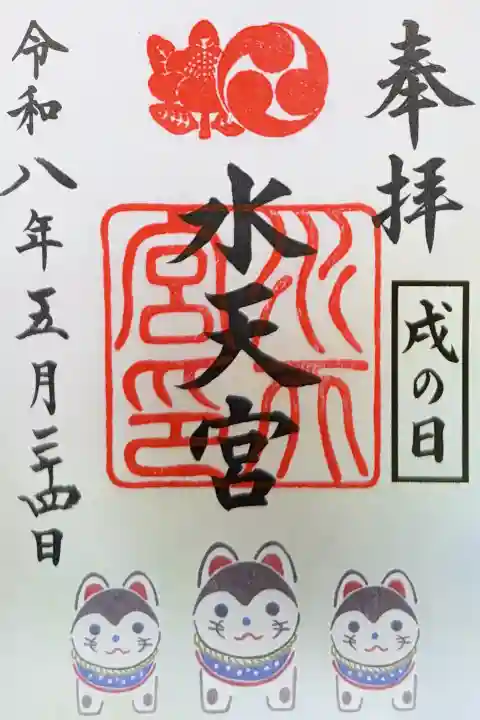 奉拝
戌の日
水天宮
水天宮印
令和八年五月二十四日